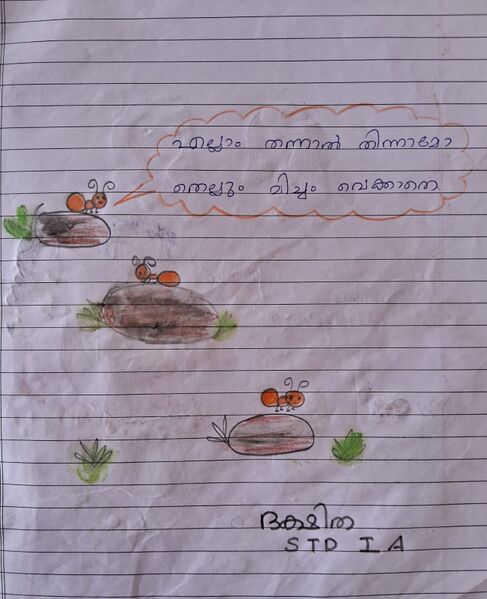 എല്ലാം തന്നാൽ തിന്നാമോ
തെല്ലും മിച്ചം വെക്കാതെ
ദക്ഷിത
STD I A